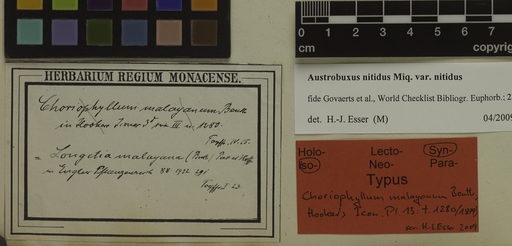 HERBARIUM REGIUM MONACENSE.
Choriophyllum malayanum Benth
in Hooker Icones 3d III n. 1280.
= Longetia malayana (Benth) Pax et Hoffm
in Engler Pflanzenreich 81 1922 291
0 1 2 3 4
cm
copyrig
Austrobuxus nitidus Miq. var. nitidus
fide Govaerts et al., World Checklist Bibliogr. Euphorb.: 2
det. H.-J. Esser (M) 04/2009
Holo- Lecto- Syn-
Iso- Neo- Para-
Typus
Choriophyllum malayanum Benth,
Hooker's Icon. Pl 13 t. 1280/1879